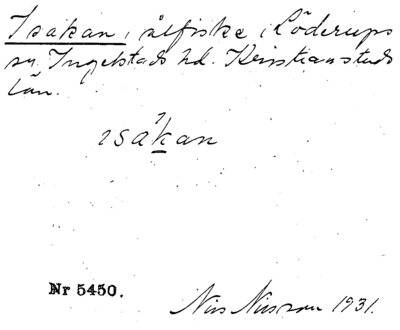 Isakan, ålfiske i Löderups
sn. Ingelstads hd. Kristianstads
län.
isakan
Nr 5450.
Nils Nilsson 1931.